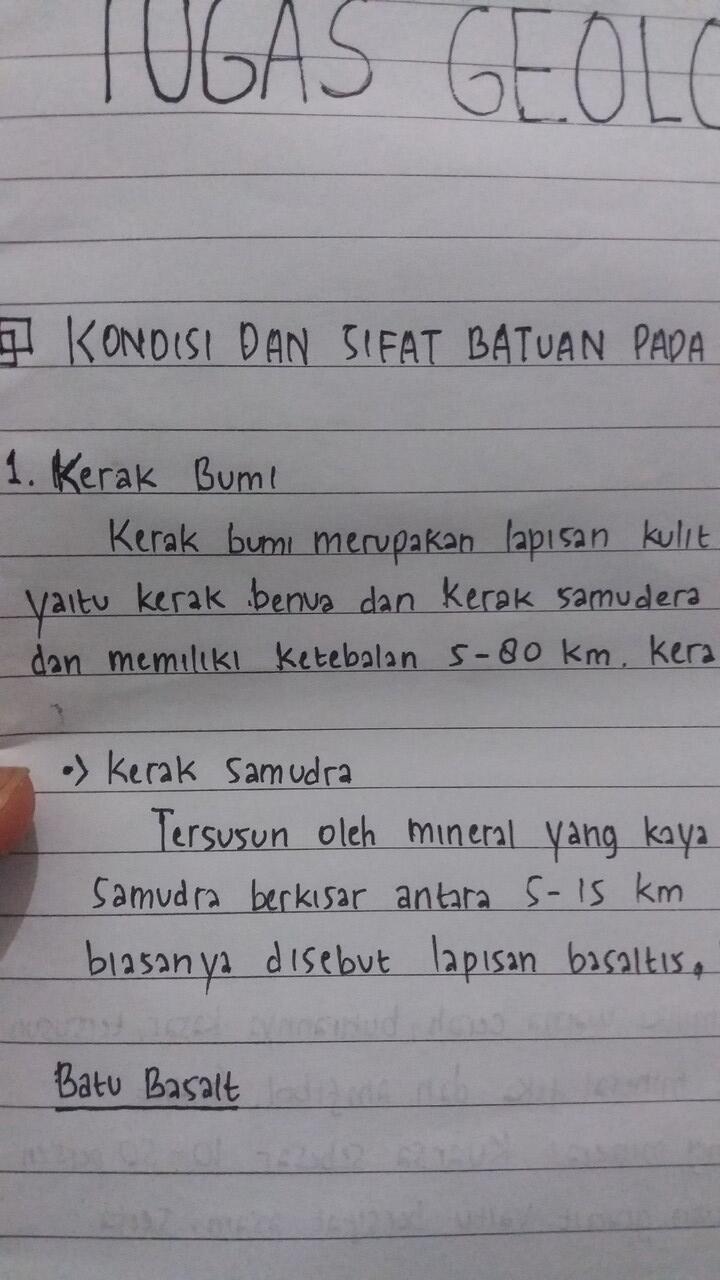 TUGAS GEOLO
KONDISI DAN SIFAT BATUAN PADA
1. Kerak Bumi
Kerak bumi merupakan lapisan kulit
yaitu kerak benua dan kerak samudera
dan memiliki ketebalan 5-80 km. kera
•> Kerak Samudra
Tersusun oleh mineral yang kaya
Samudra berkisar antara 5-15 km
biasanya disebut lapisan basaltis.
Batu Basalt